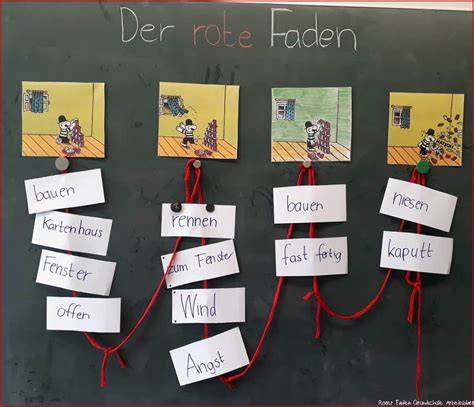 Der rote Faden
bauen
Kartenhaus
Fenster
offen
rennen
zum Fenster
Wind
Angst
bauen
fast fertig
niesen
kaputt
Roter Faden Grundschule Arbeitsblatt